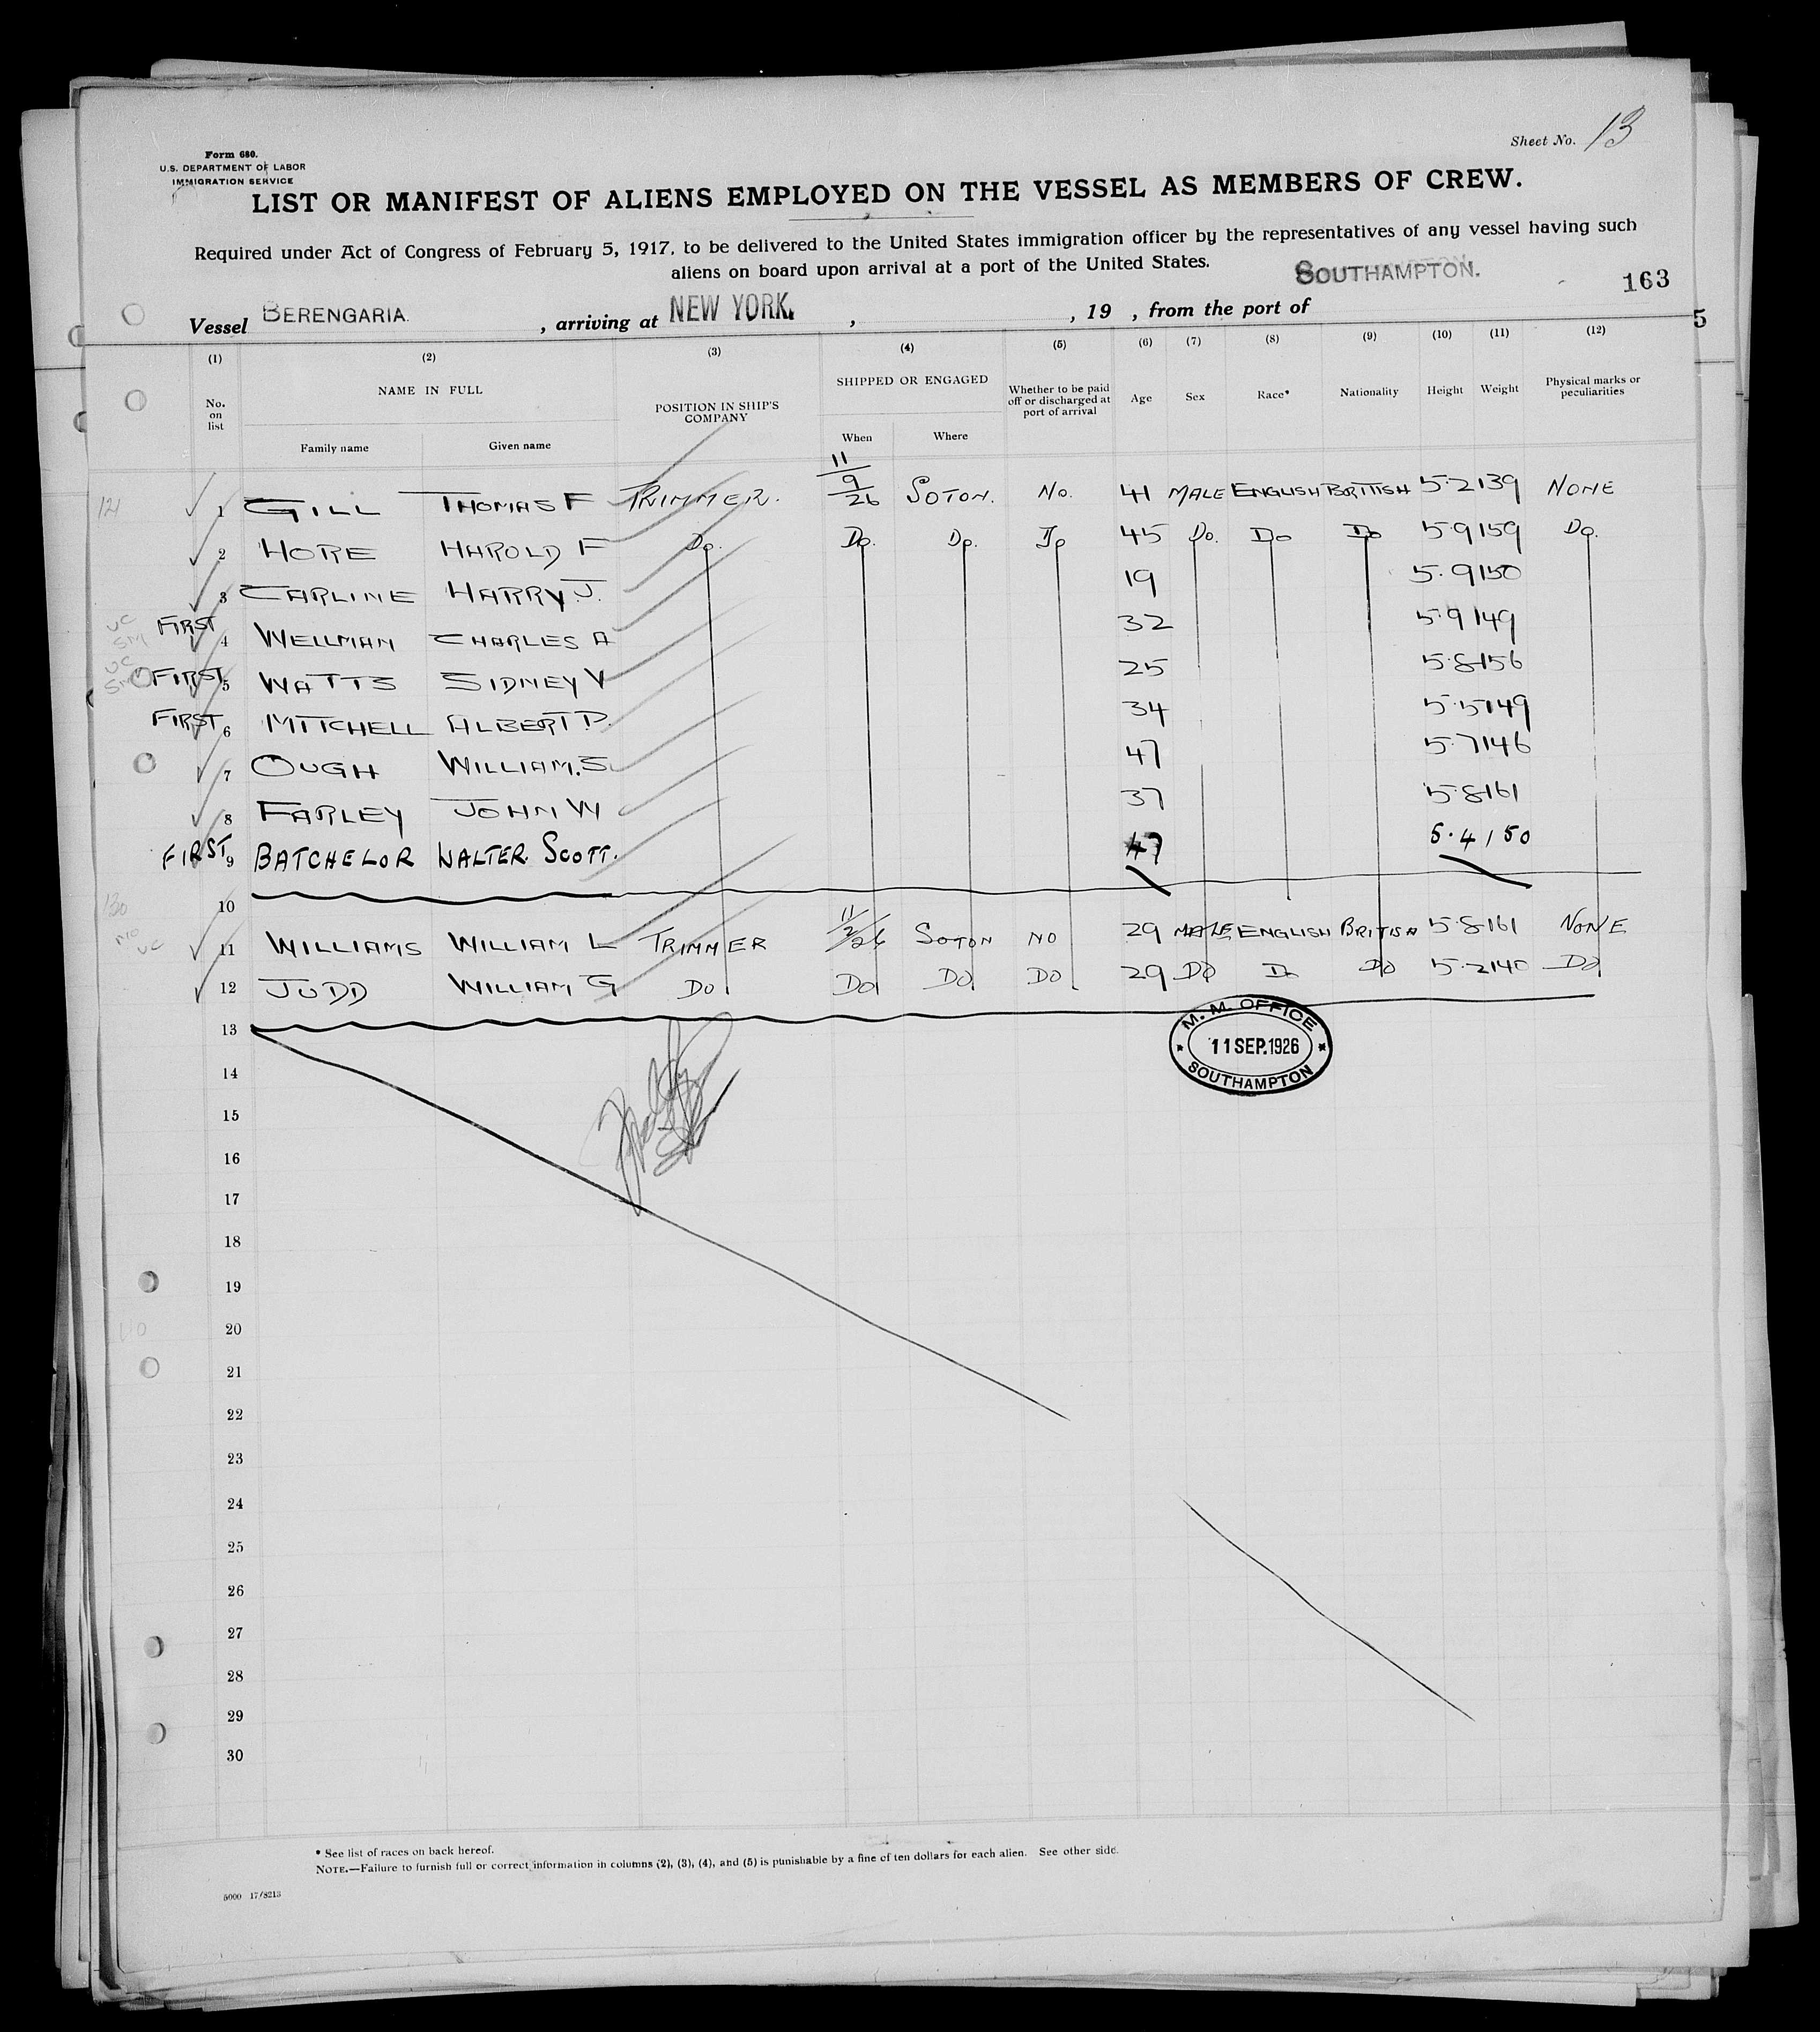 Sheet No. 13
Form 680.
U.S. DEPARTMENT OF LABOR
IMMIGRATION SERVICE
LIST OR MANIFEST OF ALIENS EMPLOYED ON THE VESSEL AS MEMBERS OF CREW.
Required under Act of Congress of February 5, 1917, to be delivered to the United States immigration officer by the representatives of any vessel having such
aliens on board upon arrival at a port of the United States.
163
Vessel BERENGARIA , arriving at NEW YORK. , , 19 , from the port of SOUTHAMPTON.
5
(1) (2) (3) (4) (5) (6) (7) (8) (9) (10) (11) (12)
No. on list NAME IN FULL POSITION IN SHIP'S COMPANY SHIPPED OR ENGAGED Whether to be paid off or discharged at port of arrival Age Sex Race* Nationality Height Weight Physical marks or peculiarities
Family name Given name When Where
121 1 GILL THOMAS F TRIMMER. 11/9/26 SOTON. No. 41 MALE ENGLISH BRITISH 5.2 139 NONE
2 HORE HAROLD F Do. Do. Do. Do 45 Do. Do Do 5.9 159 Do.
3 CARLINE HARRY J. 19 5.9 150
FIRST 4 WELLMAN CHARLES A 32 5.9 149
FIRST 5 WATTS SIDNEY V 25 5.8 156
FIRST 6 MITCHELL ALBERT D. 34 5.5 149
7 OUGH WILLIAM. S. 47 5.7 146
8 FARLEY JOHN W 37 5.8 161
FIRST 9 BATCHELOR WALTER SCOTT. 47 5.4 150
130 10
11 WILLIAMS WILLIAM L TRIMMER 11/9/26 SOTON NO 29 MALE ENGLISH BRITISH 5.8 161 NONE
12 JUDD WILLIAM G DO DO DO DO 29 DO Do DO 5.2 140 DO
13
M. M. OFFICE
11 SEP. 1926
SOUTHAMPTON
14
15
16
17
18
19
20
21
22
23
24
25
26
27
28
29
30
* See list of races on back hereof.
NOTE.—Failure to furnish full or correct information in columns (2), (3), (4), and (5) is punishable by a fine of ten dollars for each alien. See other side.
5000 17/8213